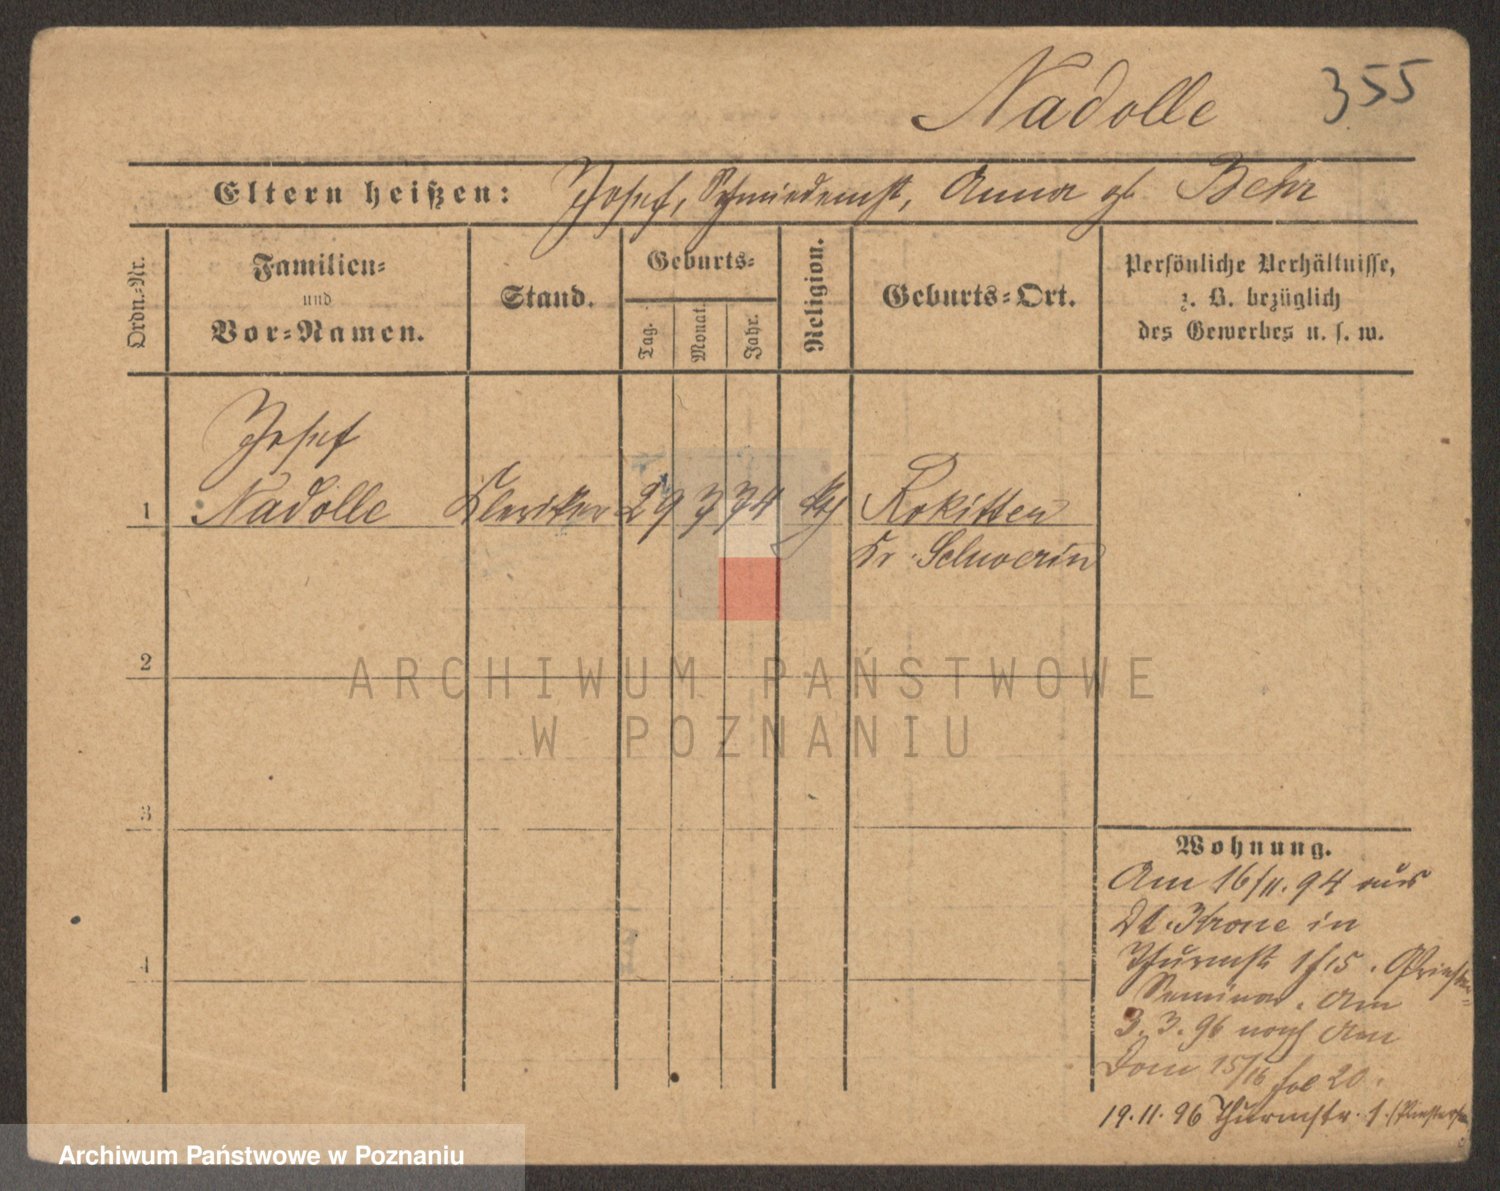 Nadolle 355
Eltern heißen: Josef, Schmiedemstr, Anna gb Behr
Ordn.-Nr.
Familien-
und
Vor-Namen.
Stand.
Geburts-
Tag.
Monat.
Jahr.
Religion.
Geburts-Ort.
Persönliche Verhältnisse,
z. B. bezüglich
des Gewerbes u. s. w.
Josef
1 Nadolle Kleriker 29 7 74 kth Rokitten
Kr. Schwerin
2
ARCHIWUM PAŃSTWOWE
W POZNANIU
3
Wohnung.
Am 16/11. 94 aus
Dt. Krone in
4
Thurmstr 1/15. Priester-
Seminar. Am
3. 3. 96 nach Am
Dom 15/16 fol 20.
19. 11. 96 Thurmstr. 1.
Archiwum Państwowe w Poznaniu